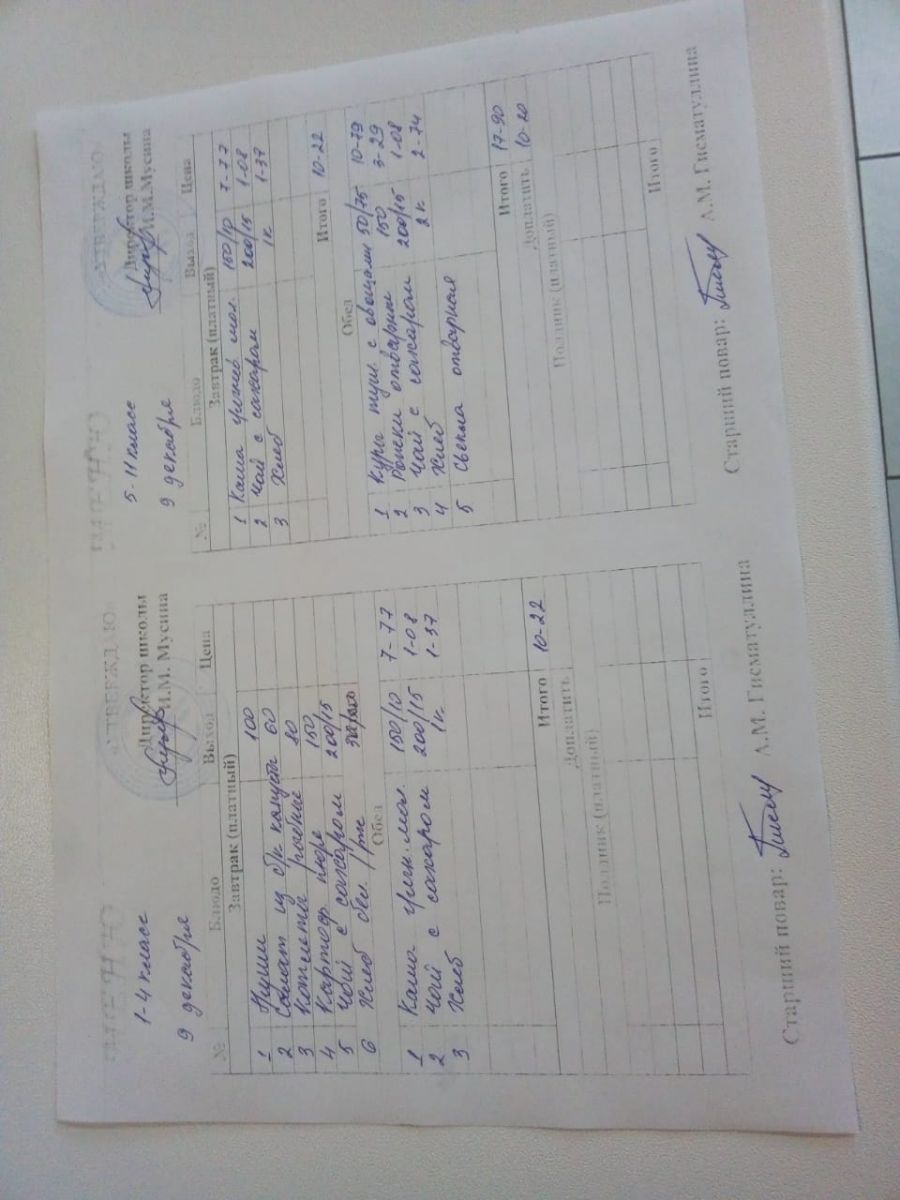 МЕНЮ
«УТВЕРЖДАЮ»
Директор школы
И.М. Мусина
1-4 класс
9 декабря
№ Блюдо Выход Цена
Завтрак (платный)
1 100
2 Салат из б/к капусты 60
3 Котлеты рыбные 80
4 Картоф. пюре 150
5 Чай с сахаром 200/15
6 Хлеб бел. / рж
Обед
1 Каша гречн. мол. 150/10 7-77
2 Чай с сахаром 200/15 1-08
3 Хлеб 1к 1-37
Итого 10-22
Доплатить
Полдник (платный)
Итого
Старший повар: А.М. Гисматуллина
МЕНЮ
«УТВЕРЖДАЮ»
Директор школы
И.М. Мусина
5-11 класс
9 декабря
№ Блюдо Выход Цена
Завтрак (платный)
1 Каша мол. 150/10 7-77
2 Чай с сахаром 200/15 1-08
3 Хлеб 1к 1-37
Итого 10-22
Обед
1 Куры туш. с овощами 50/75 10-79
2 отварные 150 3-29
3 Чай с сахаром 200/15 1-08
4 Хлеб 2к 2-74
5 Свекла отварная
Итого 17-90
Доплатить 10-20
Полдник (платный)
Итого
Старший повар: А.М. Гисматуллина